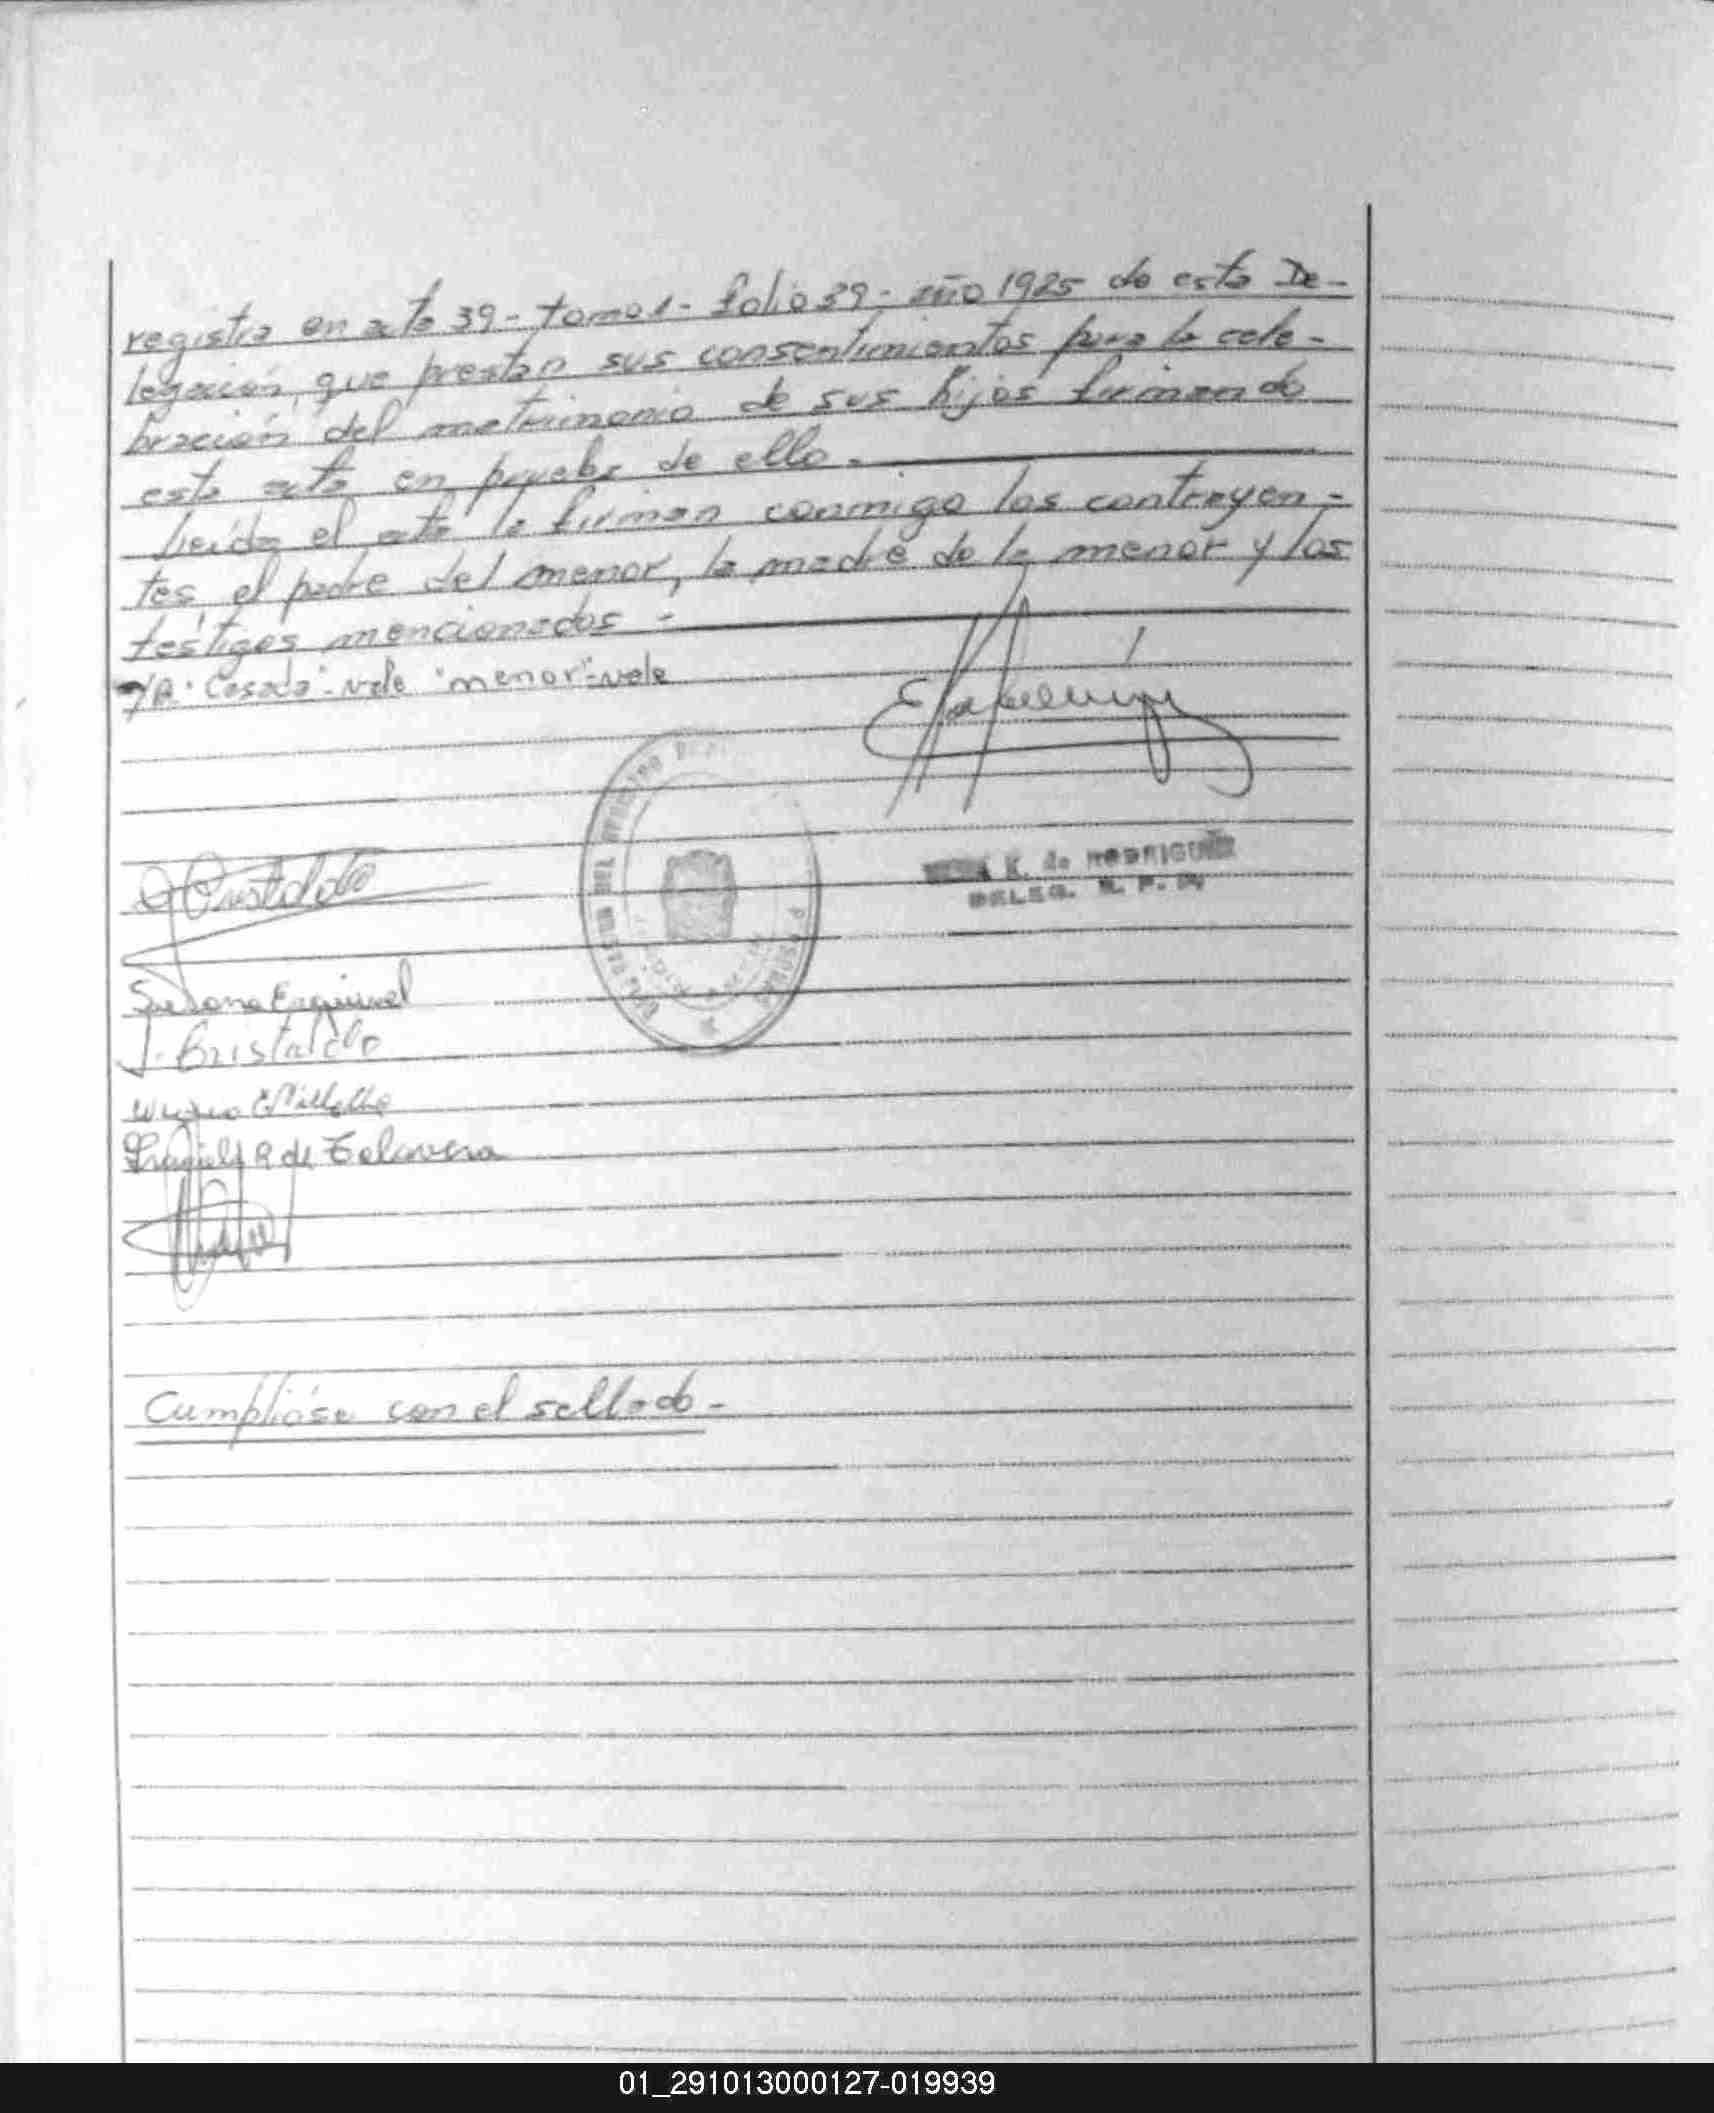 registra en acta 39 - tomo 1 - folio 39 - año 1925 de esta De-
legación, que prestan sus consentimientos para la cele-
bración del matrimonio de sus hijos firmando
esta acta en prueba de ello.
Leída el acta la firman conmigo los contrayen-
tes, el padre del menor, la madre de la menor y los
testigos mencionados -
"Casada" - vale "menor" - vale
K. de RODRIGUEZ
DELEG. R. P.
Susana Esquivel
J. Cristaldo
de Talavera
Cumplióse con el sellado -
01_291013000127-019939